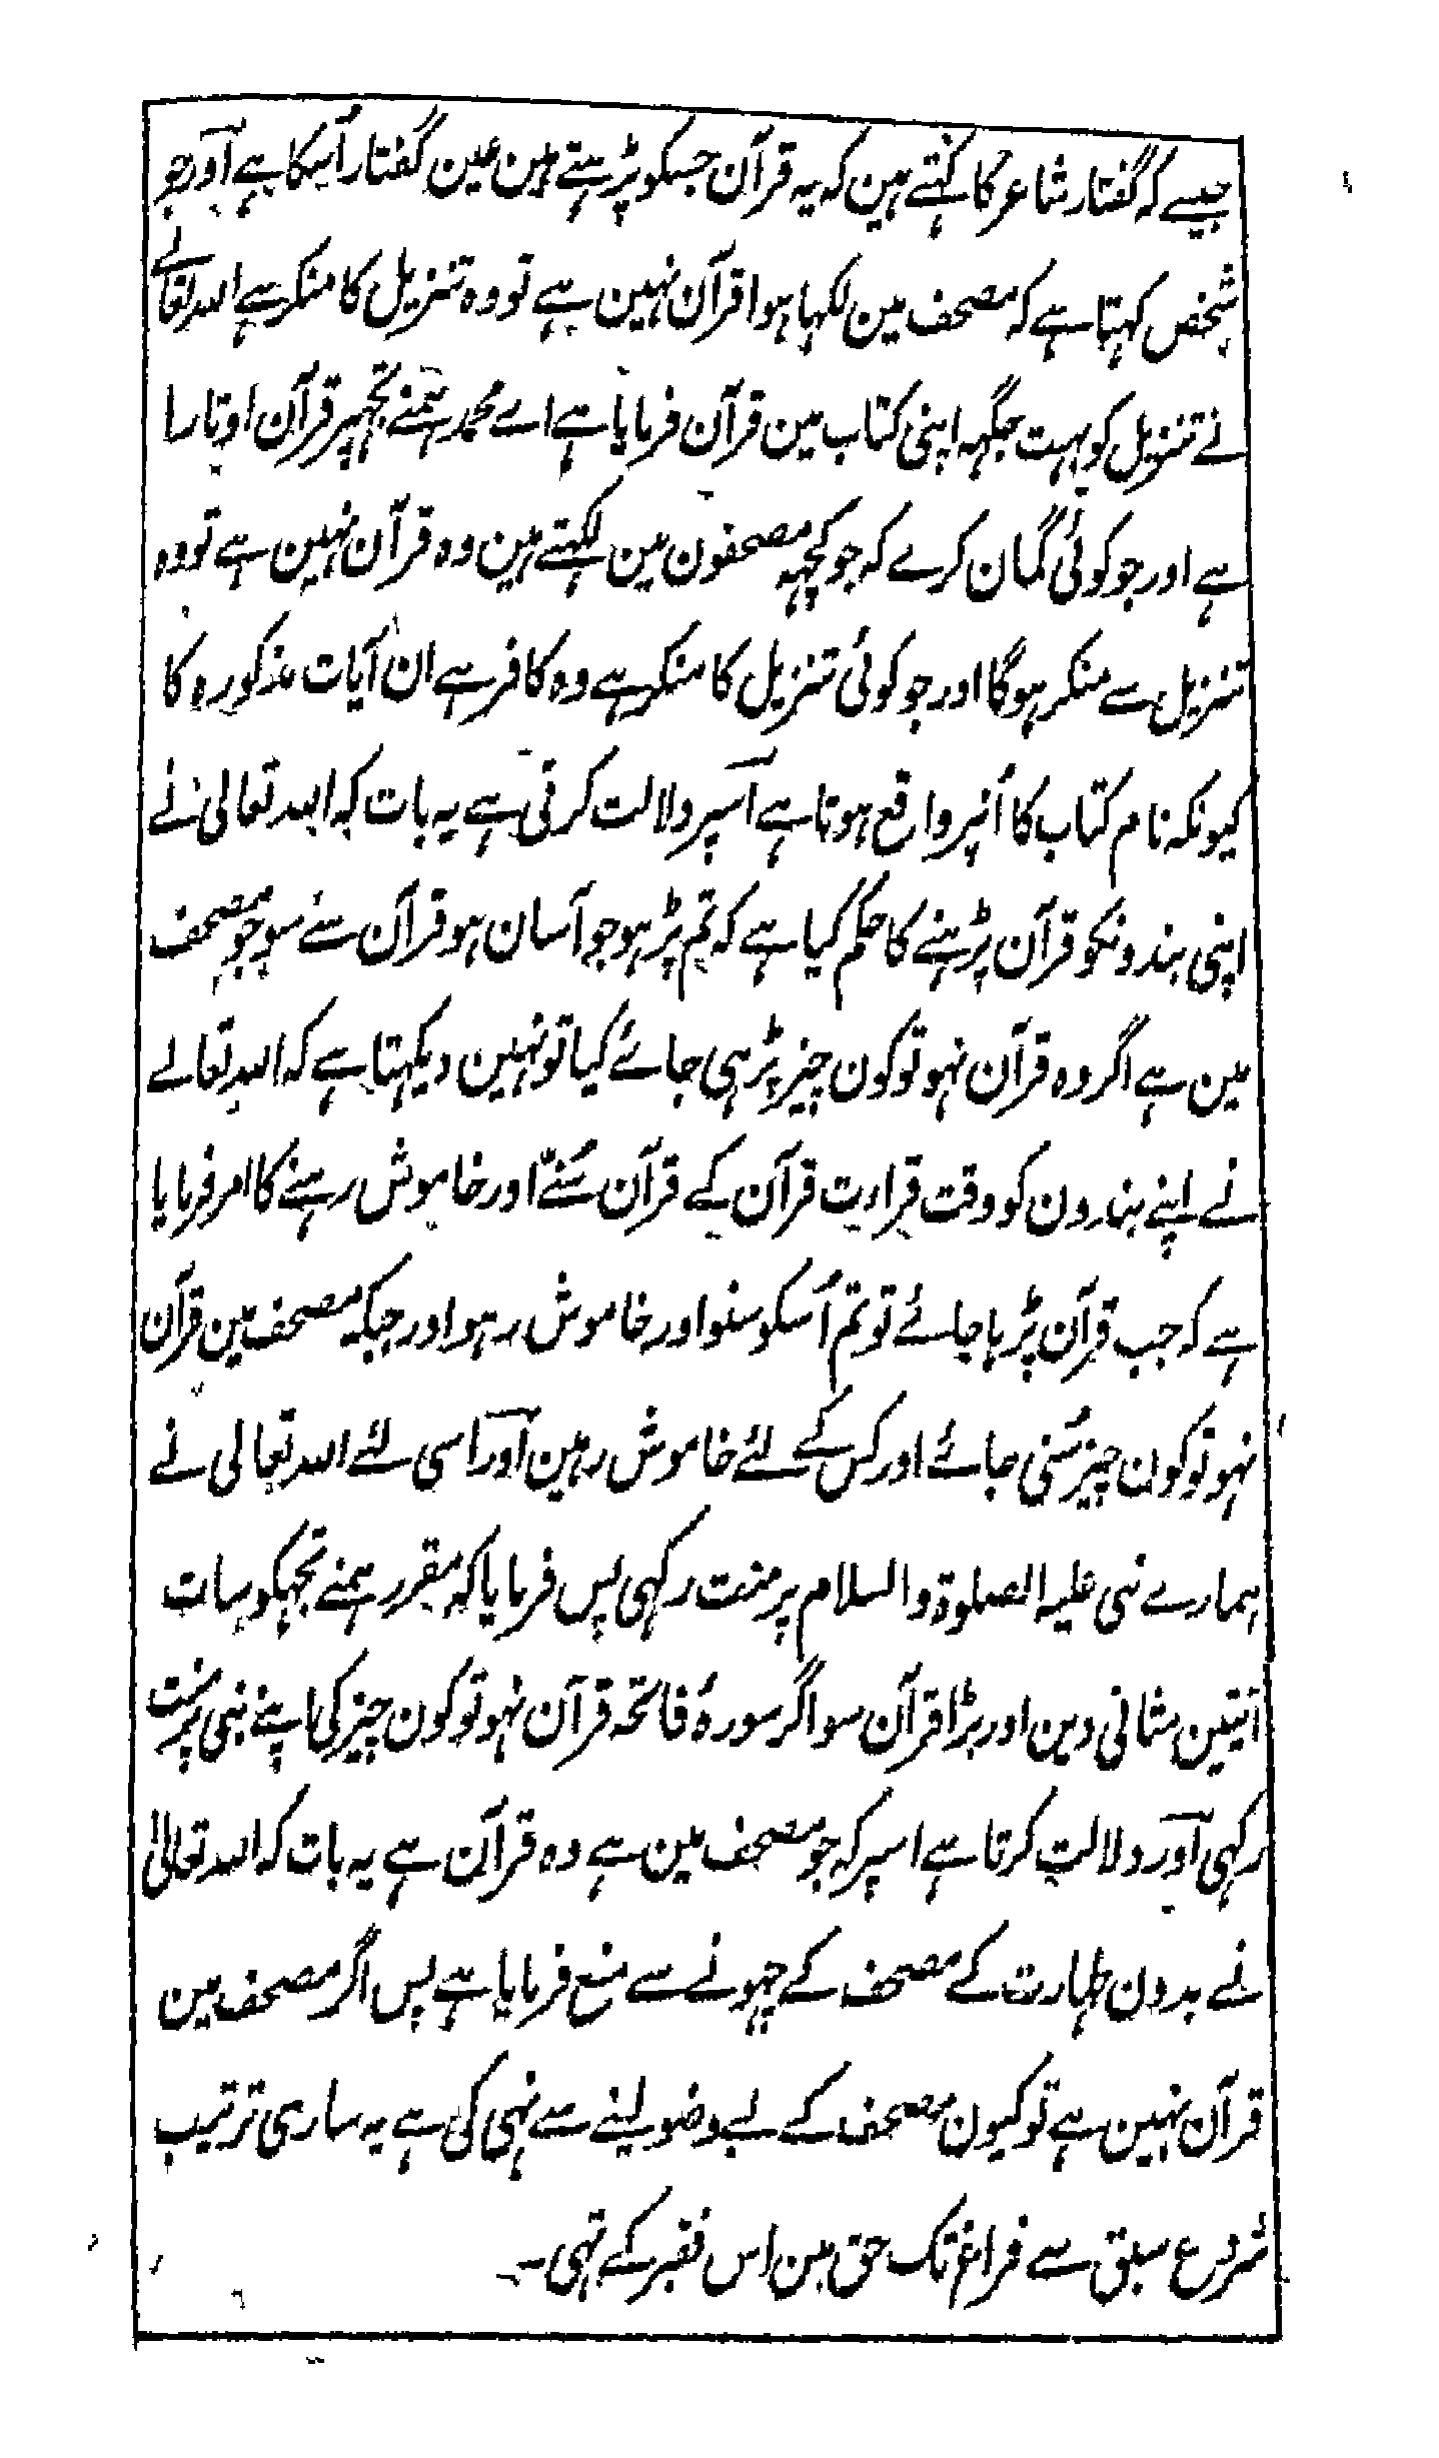 جیسے کہ گفتار شاعر کا کہتے ہین کہ یہ قرآن جسکو پڑہتے ہین عین گفتار اُسکا ہے اور جو
شخص کہتا ہے کہ مصحف مین لکہا ہوا قرآن نہین ہے تو وہ تنزیل کا منکر ہے اللہ تعالے
نے تنزیل کو بہت جگہہ اپنی کتاب مین قرآن فرمایا ہے اے محمد ہمنے تجہپر قرآن اوتارا
ہے اور جو کوئی گمان کرے کہ جو کچہہ مصحفون مین لکہتے ہین وہ قرآن نہین ہے تو وہ
تنزیل سے منکر ہوگا اور جو کوئی تنزیل کا منکر ہے وہ کافر ہے ان آیات مذکورہ کا
کیونکہ نام کتاب کا اُنپر واقع ہوتا ہے اسپر دلالت کرتی ہے یہ بات کہ اللہ تعالی نے
اپنی بندونکو قرآن پڑہنے کا حکم کیا ہے کہ تم پڑہو جو آسان ہو قرآن سے سو جو مصحف
مین ہے اگر وہ قرآن نہو تو کون چیز پڑہی جائے کیا تو نہین دیکہتا ہے کہ اللہ تعالے
نے اپنے بندون کو وقت قراءت قرآن کے قرآن سُننے اور خاموش رہنے کا امر فرمایا
ہے کہ جب قرآن پڑہا جائے تو تم اُسکو سنو اور خاموش رہو اور جبکہ مصحف مین قرآن
نہو تو کون چیز سُنی جائے اور کس کے لئے خاموش رہین اور اسی لئے اللہ تعالی نے
ہمارے نبی علیہ الصلوۃ والسلام پر منت رکہی پس فرمایا کہ مقرر ہمنے تجہکو سات
آیتین مثانی دین اور بڑا قرآن سو اگر سورۂ فاتحہ قرآن نہو تو کون چیز کی اپنے نبی پر منت
رکہی اور دلالت کرتا ہے اسپر کہ جو مصحف مین ہے وہ قرآن ہے یہ بات کہ اللہ تعالیٰ
نے بدون طہارت کے مصحف کے چہونے سے منع فرمایا ہے پس اگر مصحف مین
قرآن نہین ہے تو کیون مصحف کے بے وضو لینے سے نہی کی ہے یہ ساری ترتیب
شروع سبق سے فراغ تک حق مین اس فقیر کے تہی۔